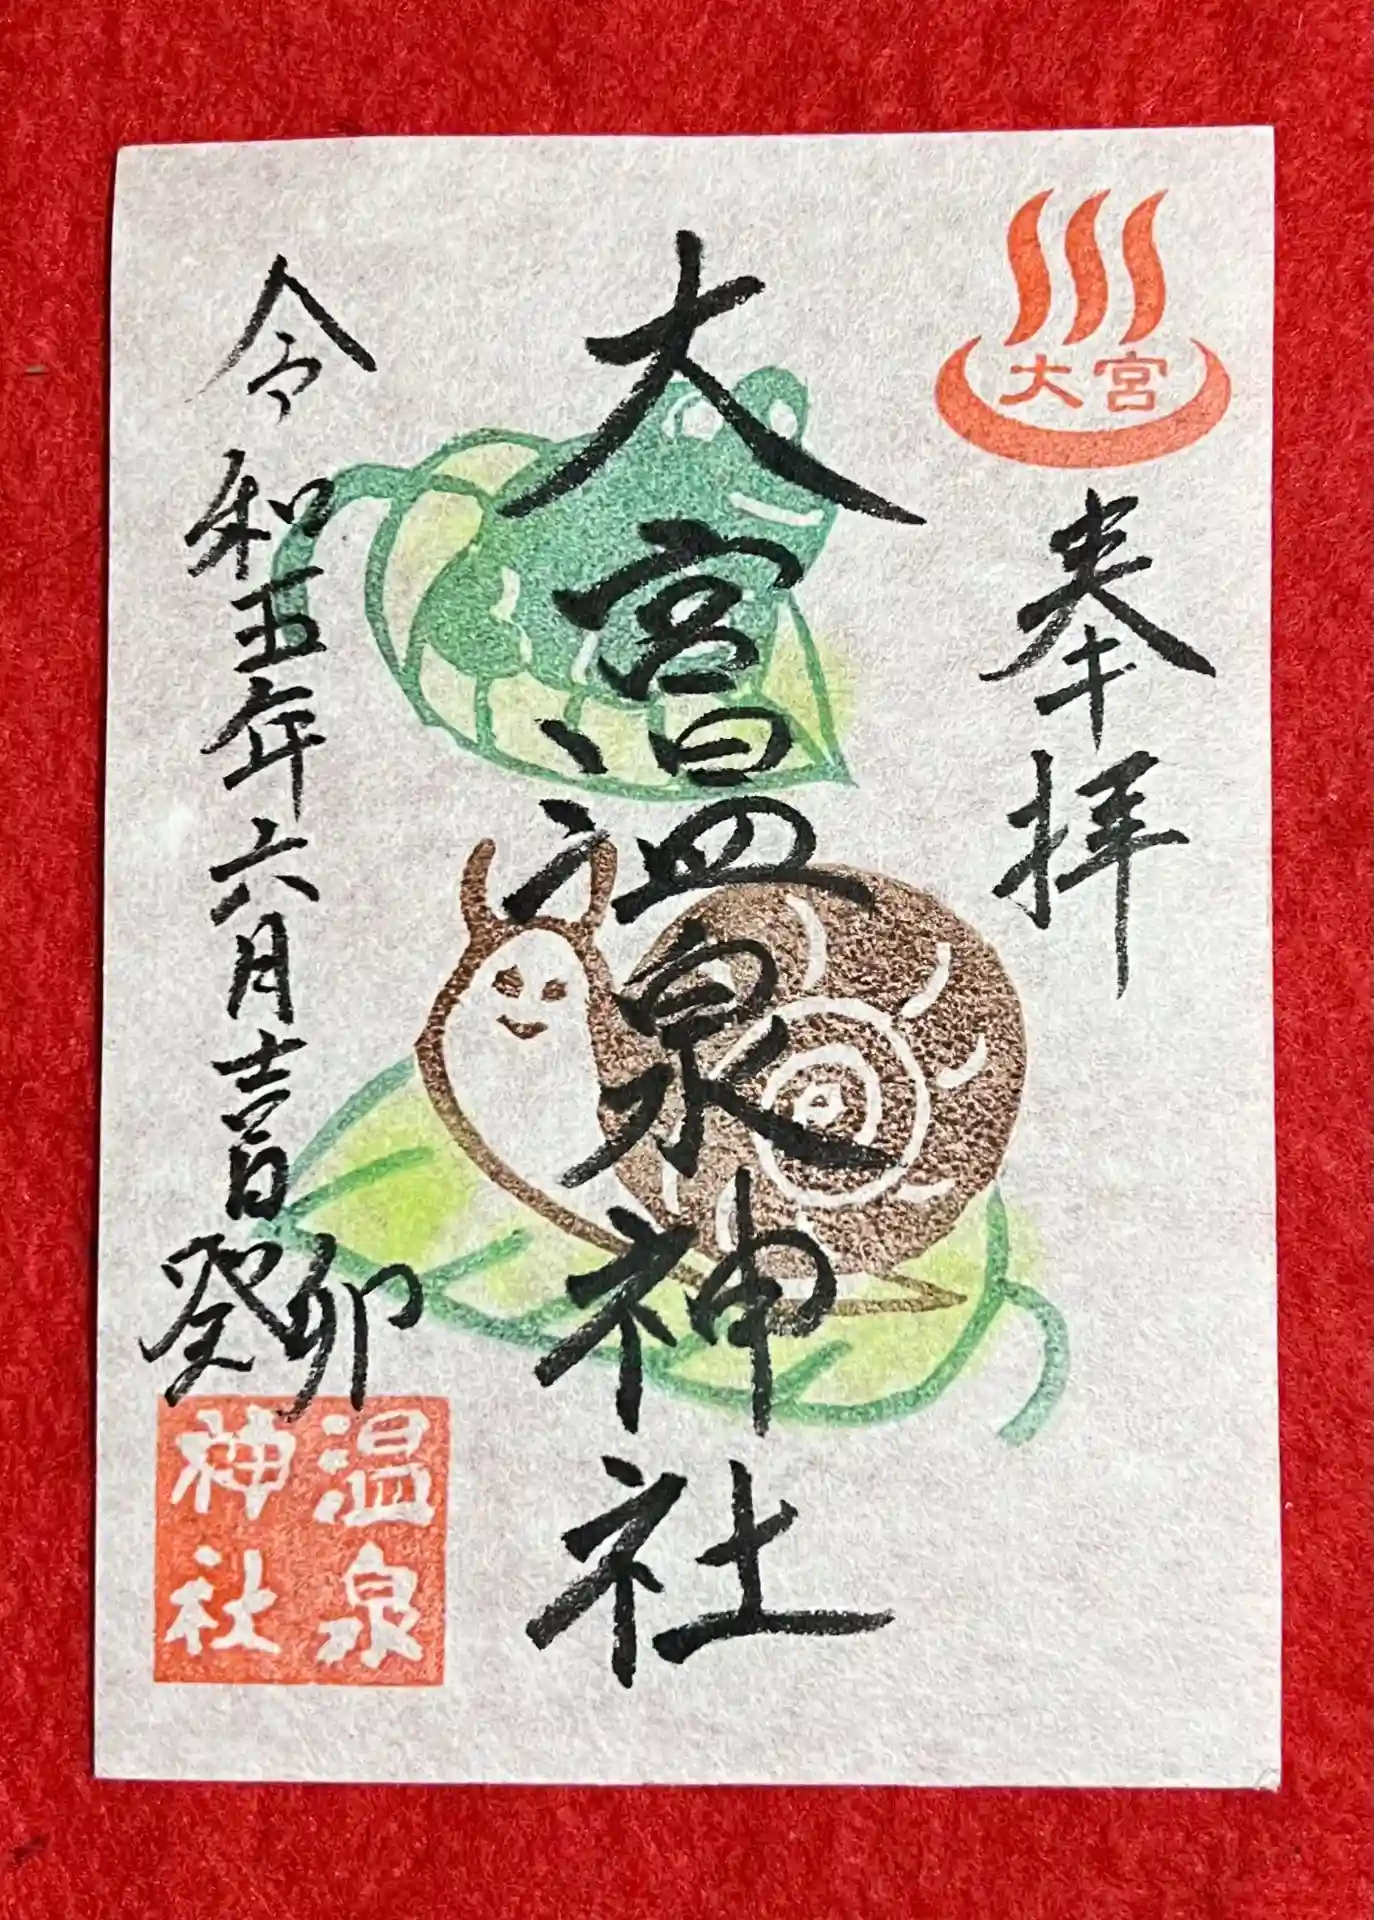 大宮
奉拝
大宮温泉神社
令和五年六月吉日
癸卯
温泉
神社